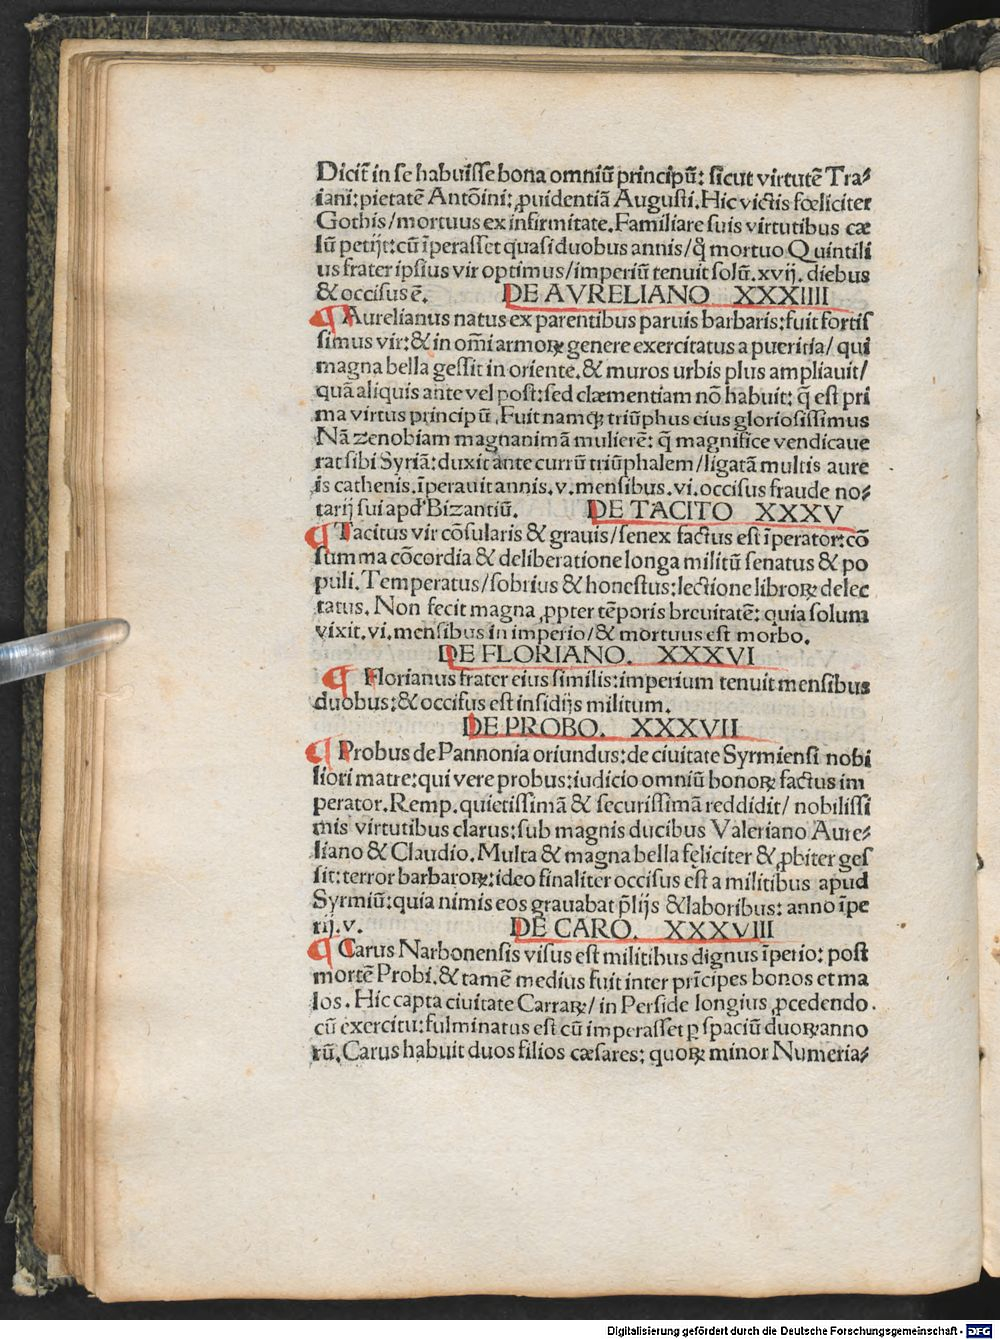 Dicit᷑ in se habuisse bona omniū principū: sicut virtutē Tra⸗
iani: pietatē Antōini: ꝓuidentiā Augusti. Hic victis fœliciter
Gothis/mortuus ex infirmitate. Familiare suis virtutibus cæ
lū petijt: cū īperasset quasi duobus annis/ q̄ mortuo Quintili
us frater ipsius vir optimus/imperiū tenuit solū. xvij. diebus
& occisus ē. DE AVRELIANO XXXIIII
¶ Aurelianus natus ex parentibus paruis barbaris: fuit fortis
simus vir: & in om̄i armoꝝ genere exercitatus a pueritia/ qui
magna bella gessit in oriente. & muros urbis plus ampliauit/
quā aliquis ante vel post: sed clæmentiam nō habuit: q̄ est pri
ma virtus principū. Fuit namqꝫ triūphus eius gloriosissimus
Nā zenobiam magnanimā mulierē: q̄ magnifice vendicaue
rat sibi Syriā: duxit ante currū triūphalem/ligatā multis aure
is cathenis. īperauit annis. v. mensibus. vi. occisus fraude no⸗
tarij sui apd' Bizantiū. DE TACITO XXXV
¶ Tacitus vir cōsularis & grauis/senex factus est īperator: cō
summa cōcordia & deliberatione longa militū senatus & po
puli. Temperatus/sobrius & honestus: lectione libroꝝ delec
tatus. Non fecit magna ꝓpter tēporis breuitatē: quia solum
vixit. vi. mensibus in imperio/& mortuus est morbo.
DE FLORIANO. XXXVI
¶ Florianus frater eius similis: imperium tenuit mensibus
duobus: & occisus est insidijs militum.
DE PROBO. XXXVII
¶ Probus de Pannonia oriundus: de ciuitate Syrmiensi nobi
liori matre: qui vere probus: iudicio omniū bonoꝝ factus im
perator. Remp. quietissimā & securissimā reddidit/ nobilissi
mis virtutibus clarus: sub magnis ducibus Valeriano Aure⸗
liano & Claudio. Multa & magna bella fęliciter & ꝓbiter ges
sit: terror barbaroꝝ: ideo finaliter occisus est a militibus apud
Syrmiū: quia nimis eos grauabat p̄lijs & laboribus: anno īpe
rij. v. DE CARO. XXXVIII
¶ Carus Narbonensis visus est militibus dignus īperio: post
mortē Probi. & tamē medius fuit inter prīcipes bonos et ma
los. Hic capta ciuitate Carraꝝ/ in Perside longius ꝓcedendo.
cū exercitu: fulminatus est cū imperasset ꝑ spaciū duoꝝ anno
rū. Carus habuit duos filios cæsares: quoꝝ minor Numeria⸗
Digitalisierung gefördert durch die Deutsche Forschungsgemeinschaft - DFG